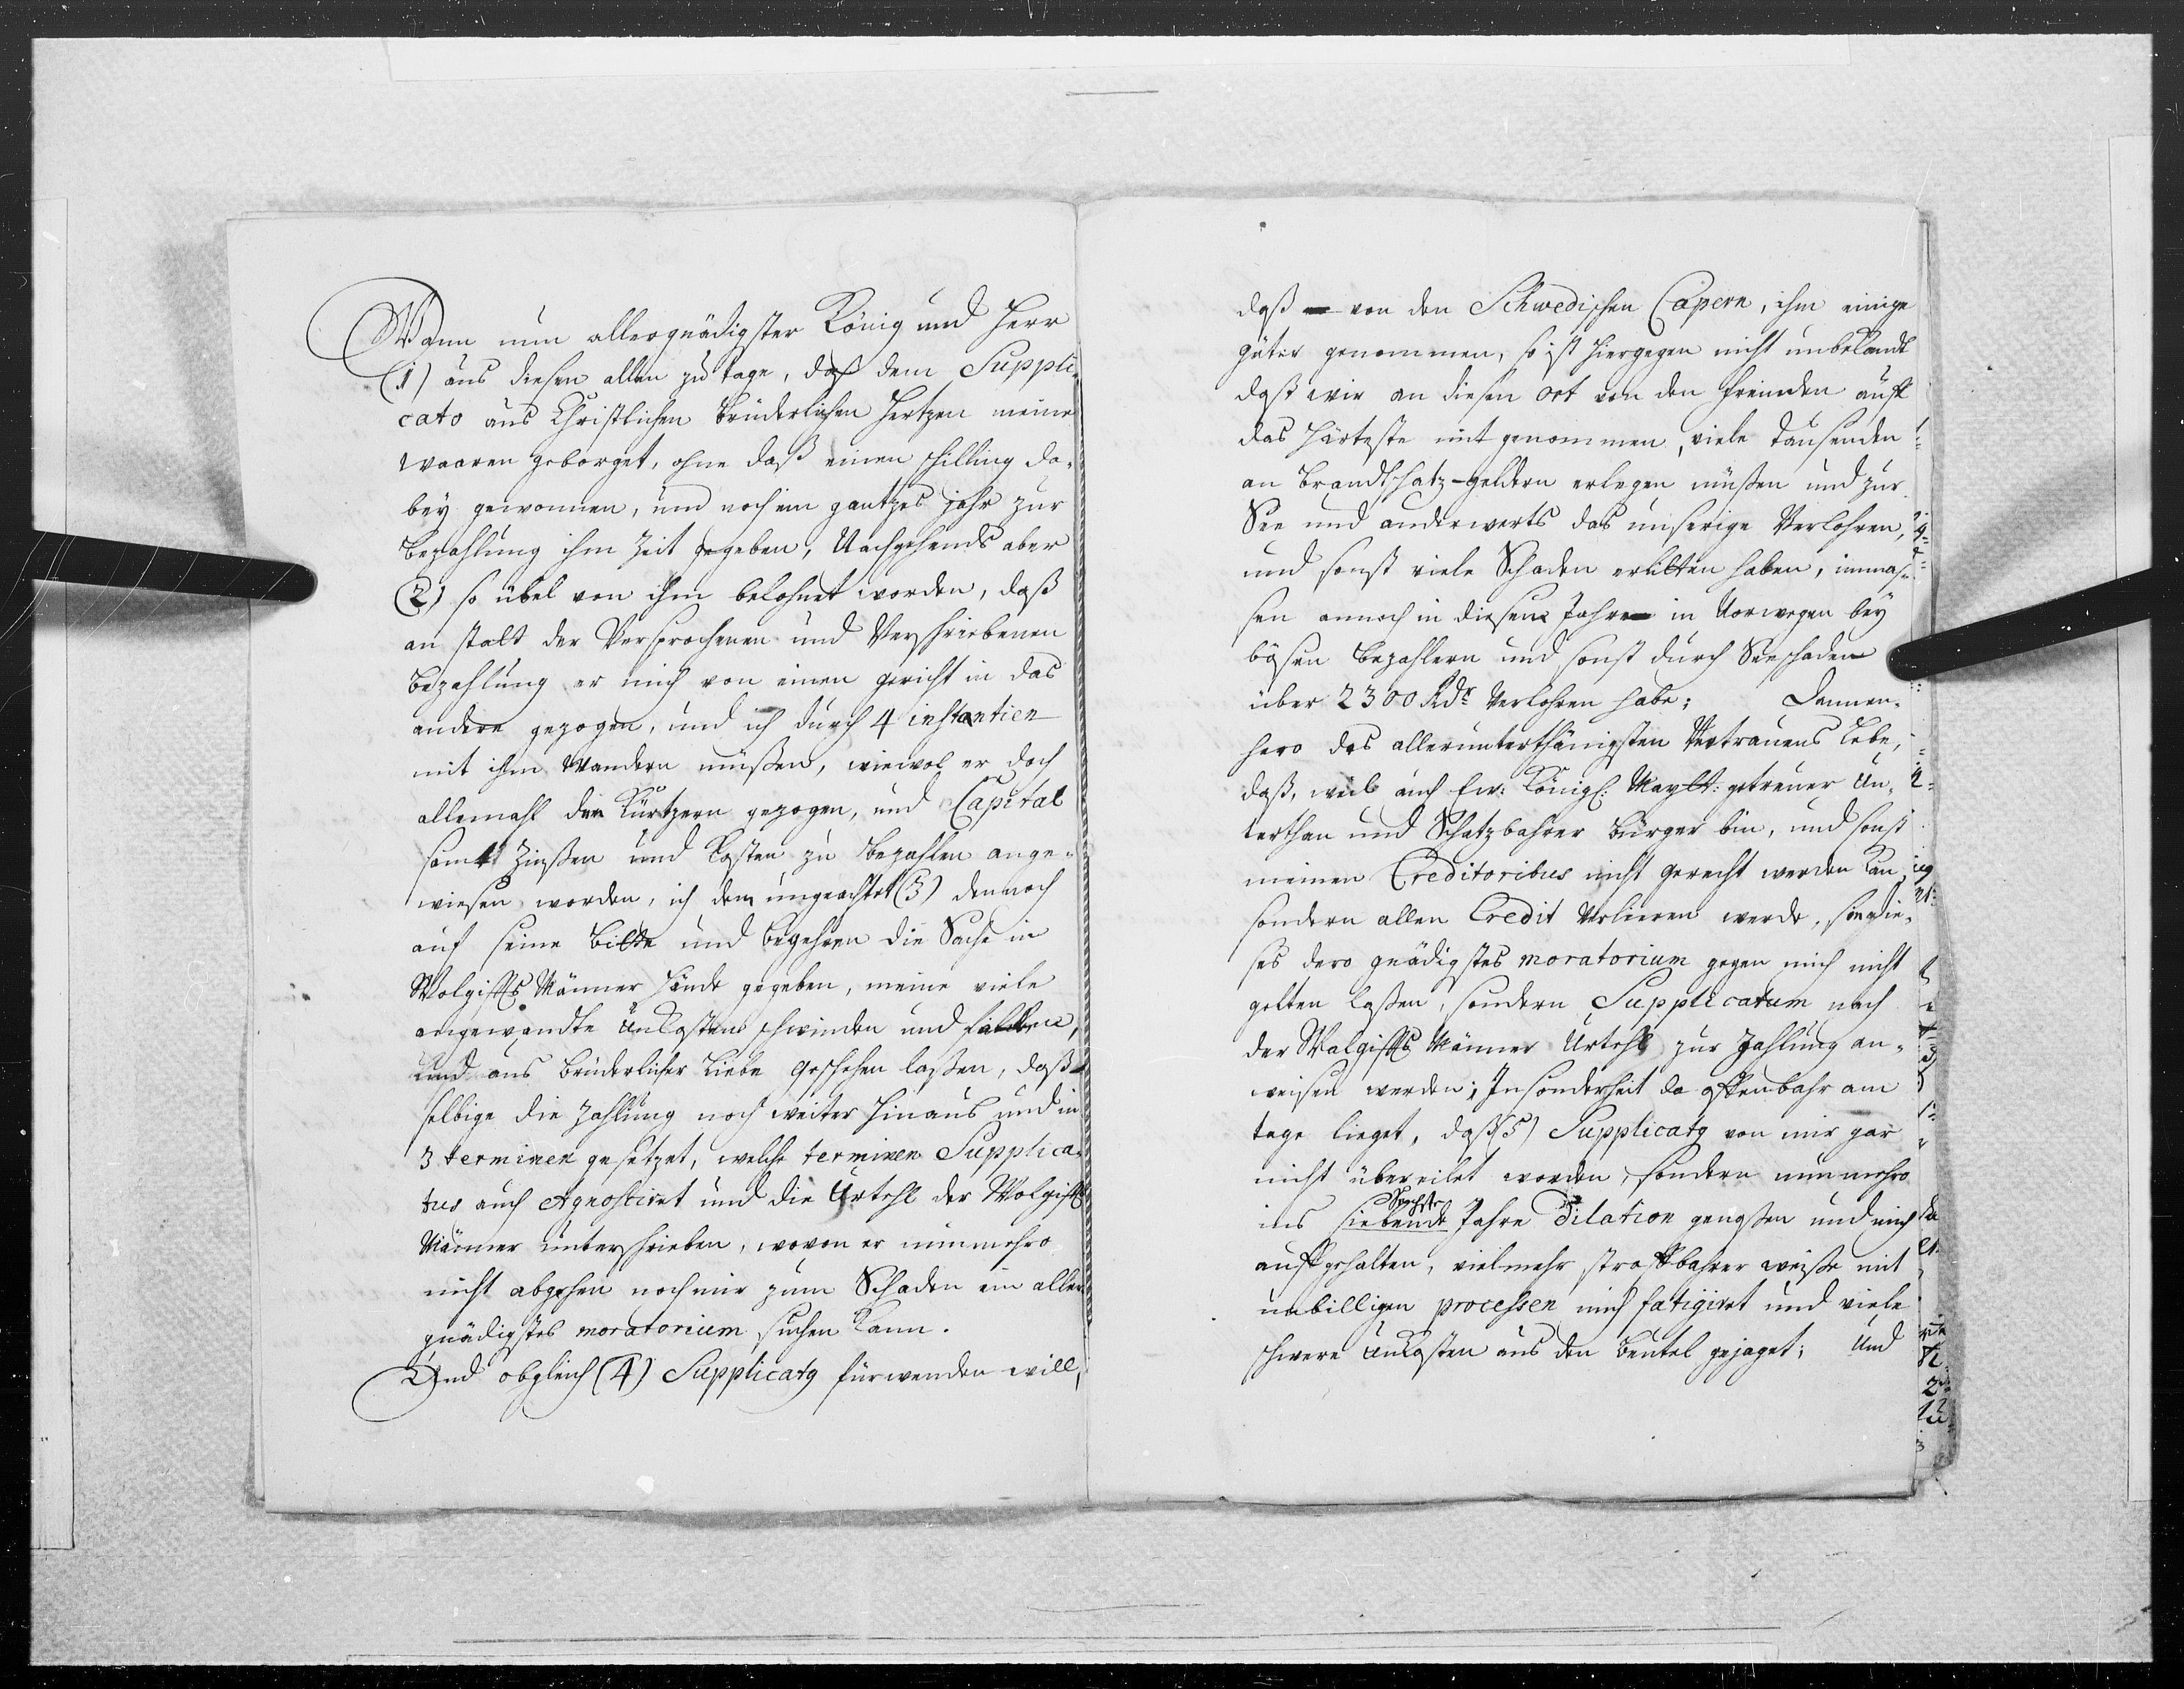 Wann nun allergnädigster König und Herr
(1) aus diesen allen zu tage, daß dem Suppli-
cato aus Christlichen brüderlichen Hertzen meine
waaren geborget, ohne daß einen schilling da-
bey gewonnen, und noch ein gantzes jahr zur
bezahlung ihm Zeit gegeben, Nachgehends aber
(2) so übel von ihm belohnet worden, daß
an statt der Versprochenen und Verschriebenen
bezahlung er mich von einen gericht in das
andere gezogen, und ich durch 4 instantien
mit ihm wandern müßen, wiewol er doch
allemahl den Kürtzern gezogen, und Capital
samt Zinßen und Kosten zu bezahlen ange-
wiesen worden, ich dem ungeachtet (3) dennoch
auf seine bitte und begehren die Sache in
Wolgiffts Männer Hände gegeben, meine viele
angewandte Unkosten schwinden und fallen,
Und aus brüderlicher Liebe geschehen laßen, daß
selbige die Zahlung noch weiter hinaus und in
3 terminen gesetzet, welche terminen Supplica-
tus auch agnosciret und die Urtehl der Wolgiffts
Männer unterschrieben, wovon er nunmehro
nicht abgehen noch mir zum Schaden ein aller-
gnädigstes moratorium suchen kann.
Und obgleich (4) Supplicatg fürwenden will,
daß von den Schwedischen Capern, ihm einige
güter genommen, so ist hiergegen nicht unbekandt
daß wir an diesen ort von den freinden auff
das härteste mit genommen, viele tausenden
an brandtschatz-geldern erlegen müßen und zur
See und anderwerts das unserige Verlohren,
und sonst viele Schaden erlitten haben, immas-
sen annoch in diesem Jahre in Norwegen bey
bösen bezahlern und sonst durch Seeschaden
über 2300 Rdr Verlohren habe; Dannen-
hero des allerunterthänigsten Vertrauens lebe,
daß, weil auch Ew: Königl: Maytt: getreuer Un-
terthan und Schatzbahrer bürger bin, und sonst
meinen Creditoribus nicht gerecht werden kan
sondern allen Credit Verlieren werde, sie die-
ses dero gnädigstes moratorium gegen mich nicht
gelten laßen, sondern Supplicatum nach
der Wolgiffts Männer Urtehl zur Zahlung an-
weisen werden; Insonderheit da offenbahr am
tage lieget, daß (5) Supplicatg von mir gar
nicht übereilet worden, sondern nunmehro
Sechste
ins siebende Jahre Dilation genoßen und mich
auffgehalten, vielmehr straffbahrer weiße mit
unbilligen processen mich fatigiret und viele
schwere Unkosten aus den beutel gejaget; Und